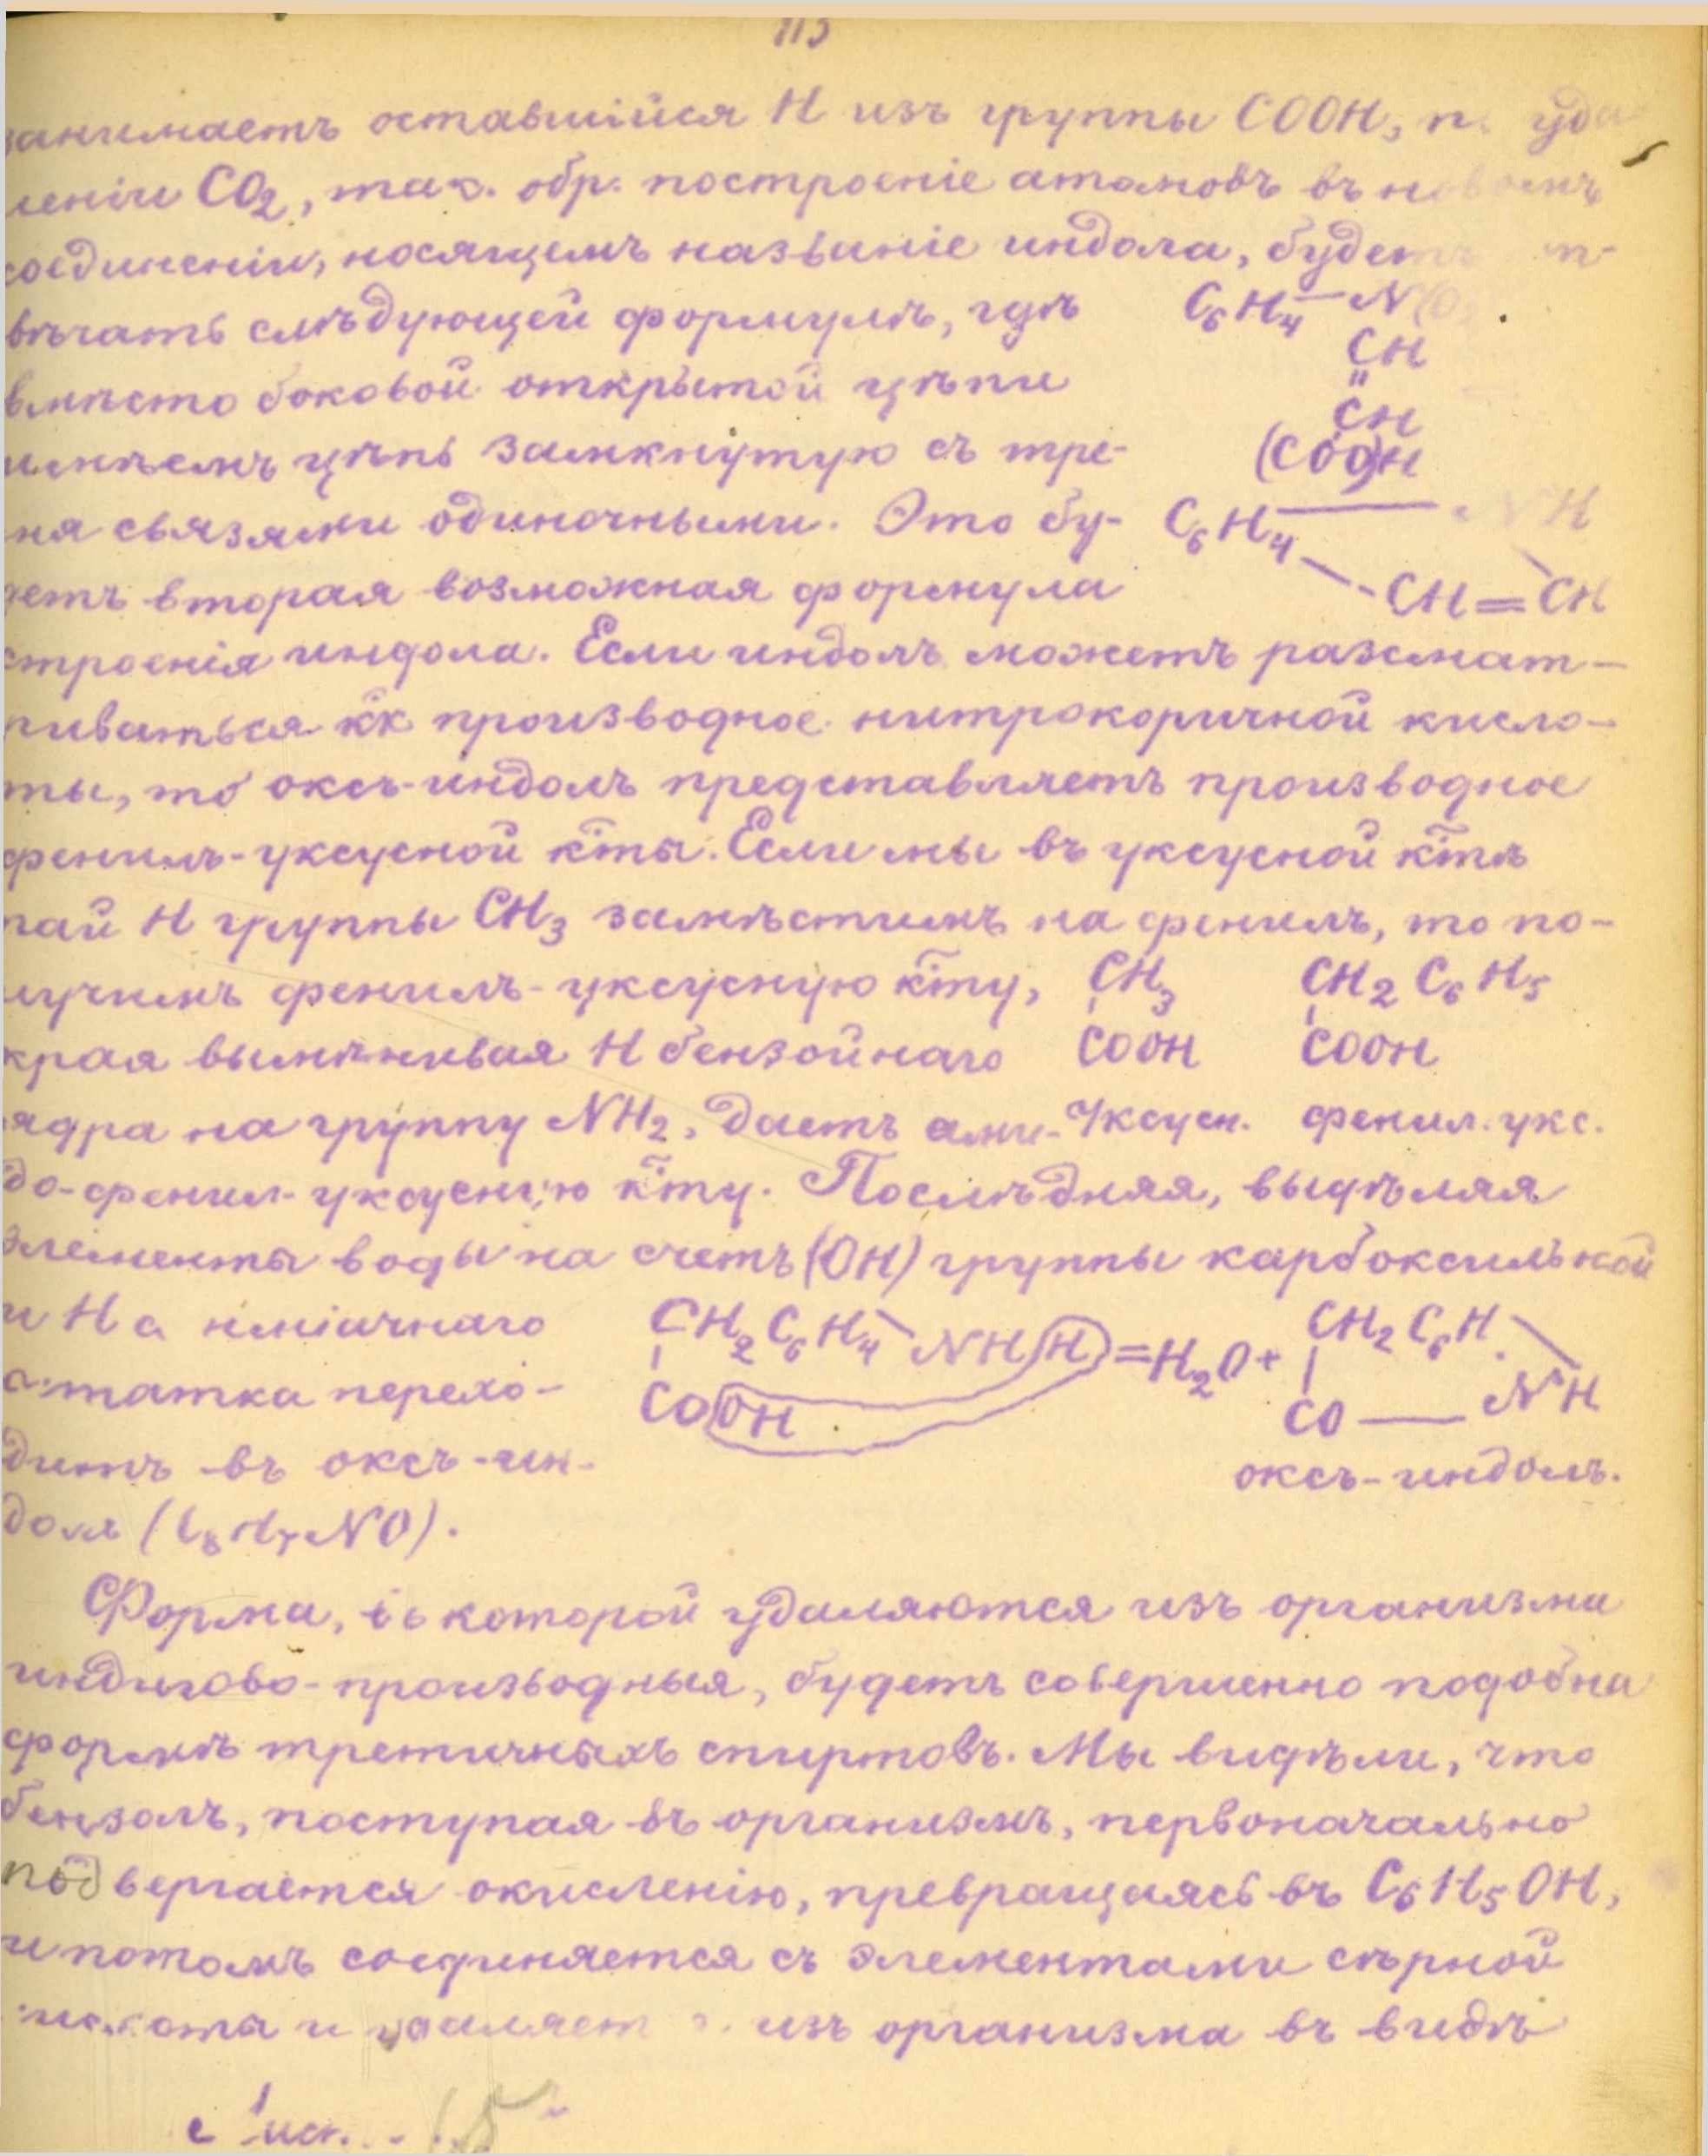 113
занимаетъ оставшійся H изъ группы COOH, п. уда-
леніи CO2, так. обр. построеніе атомовъ въ новомъ
соединеніи, носящемъ названіе индола, будетъ от-
вѣчать слѣдующей формулѣ, гдѣ C6H4 — N(O2
CH
"
вмѣсто боковой открытой цѣпи CH
имѣемъ цѣпь замкнутую съ тре- (COO)H
мя связями одиночными. Это бу- C6H4 — NH
детъ вторая возможная формула CH = CH
строенія индола. Если индолъ можетъ разсмат-
риваться к̃к производное нитрокоричной кисло-
ты, то оксъ-индолъ представляетъ производное
фенилъ-уксусной к̃ты. Если мы въ уксусной к̃тѣ
пай H группы CH3 замѣстимъ на фенилъ, то по-
лучимъ фенилъ-уксусную к̃ту, CH3 CH2 C6H5
края вымѣнивая H бензойнаго COOH COOH
ядра на группу NH2, даетъ ами- Уксусн. фенил. укс.
до-фенил-уксусную к̃ту. Послѣдняя, выдѣляя
элементы воды на счетъ (OH) группы карбоксильной
и H аміачнаго CH2 C6H4 NH(H) = H2O + CH2 C6H
остатка перехо- COOH CO — NH
дитъ въ оксъ-ин- оксъ-индолъ.
долъ (C8H7NO).
Форма, въ которой удаляются изъ организма
индигово-производныя, будетъ совершенно подобна
формѣ третичныхъ спиртовъ. Мы видѣли, что
бензолъ, поступая въ организмъ, первоначально
подвергается окисленію, превращаясь въ C6H5OH,
и потомъ соединяется съ элементами сѣрной
кислоты и удаляется изъ организма въ видѣ
15